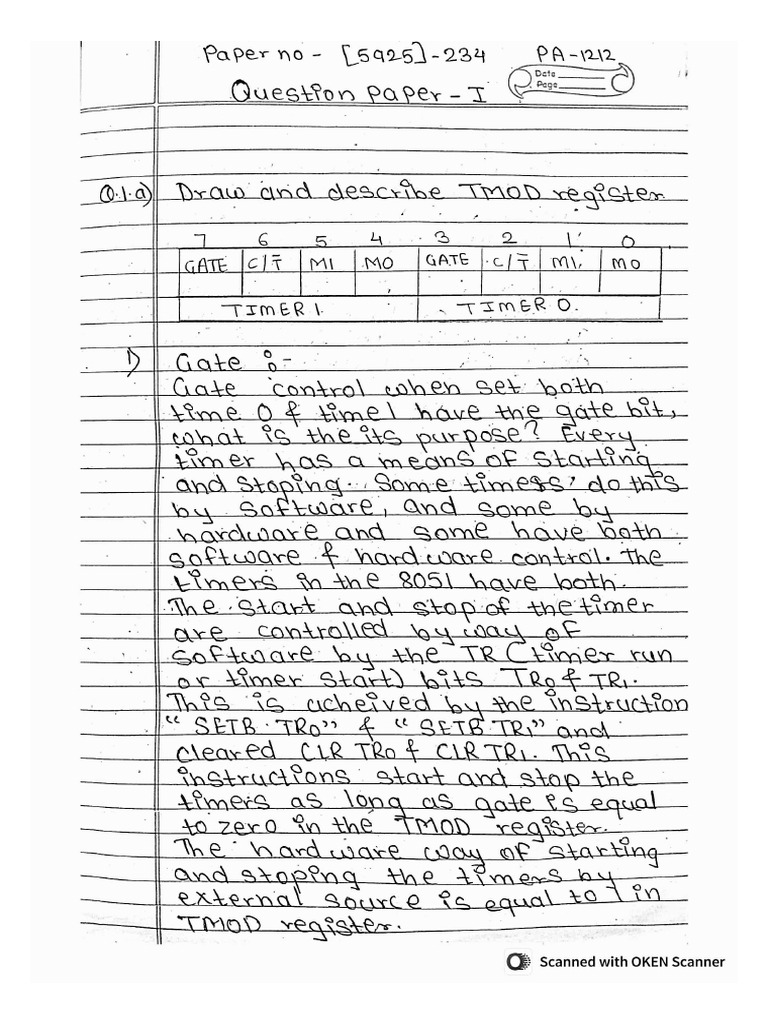 Paper no - [5925]-234 PA-1212
Date
Page
Question Paper - I
Q.1.a) Draw and describe TMOD register
7 6 5 4 3 2 1 0
GATE C/T̅ M1 M0 GATE C/T̅ M1 M0
TIMER 1 TIMER 0
1) Gate :-
Gate control when set both
time 0 & time1 have the gate bit,
what is the its purpose? Every
timer has a means of starting
and stoping. Some timers do this
by software, and some by
hardware and some have both
software & hardware control. The
timers in the 8051 have both.
The start and stop of the timer
are controlled by way of
software by the TR (timer run
or timer start) bits TR0 & TR1.
This is acheived by the instruction
"SETB TR0" & "SETB TR1" and
cleared CLR TR0 & CLR TR1. This
instructions start and stop the
timers as long as gate is equal
to zero in the TMOD register.
The hardware way of starting
and stoping the timers by
external source is equal to 1 in
TMOD register.
Scanned with OKEN Scanner